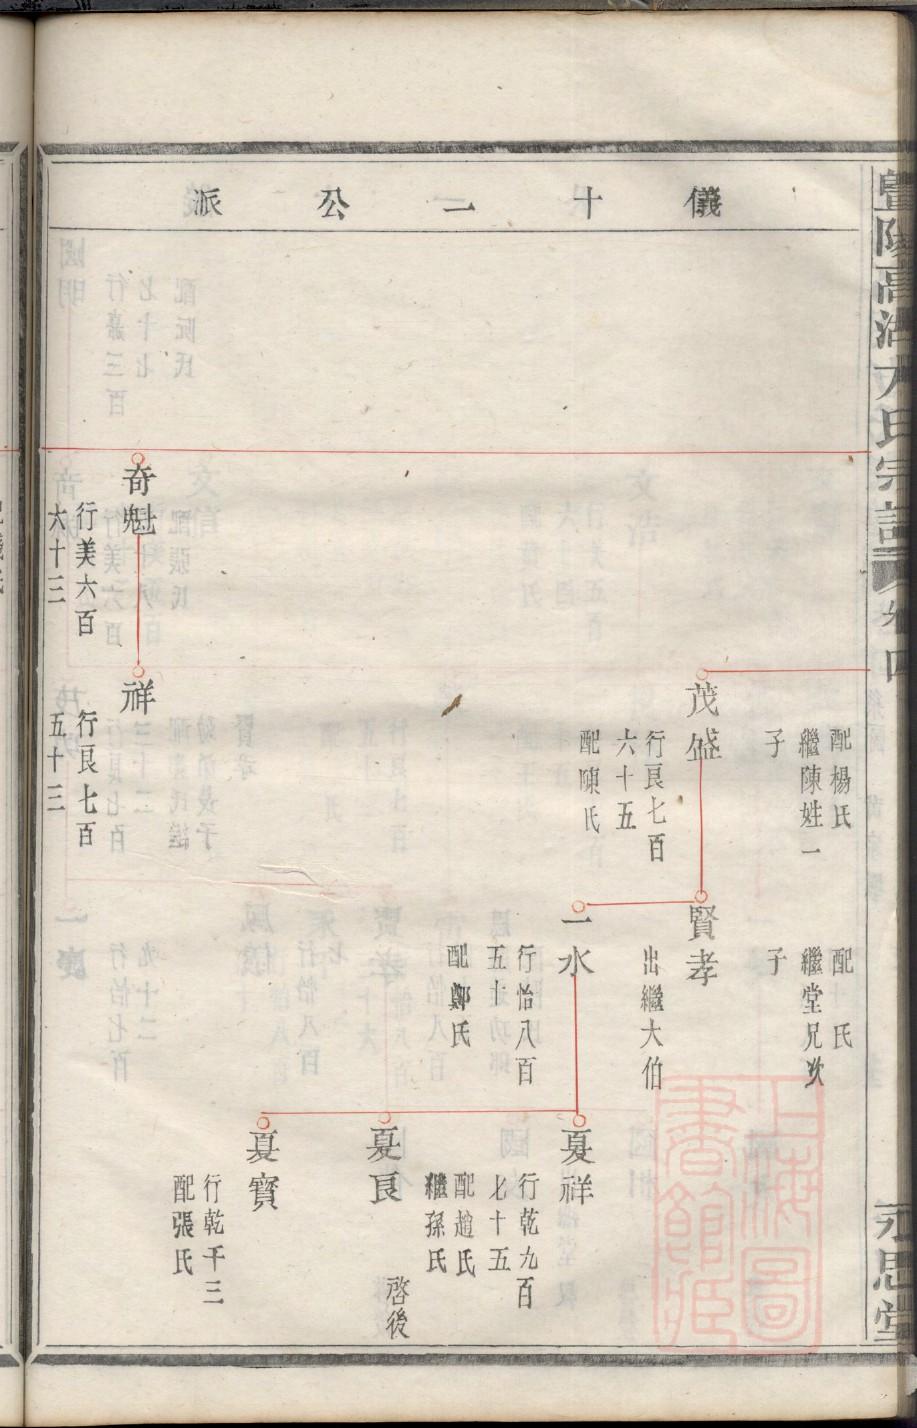 儀十二公派
配楊氏
繼陳姓一
子
配 氏
繼堂兄次
子
茂盛
行良七百
六十五
配陳氏
賢孝
出繼大伯
一水
行怡八百
五十
配鄭氏
夏祥
行乾九百
七十五
配趙氏
繼孫氏
夏良
啓後
夏寳
行乾千三
配張氏
奇魁
行美六百
六十三
祥
行良七百
五十三
永思堂